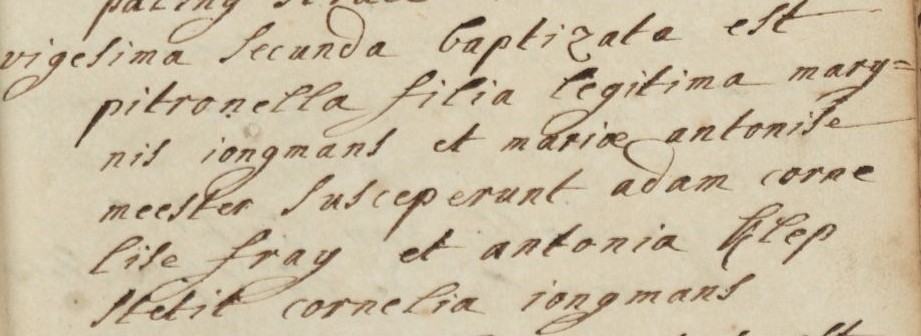 vigesima secunda baptizata est
pitronella filia legitima mary=
nis iongmans et mariæ antonise
meester susceperunt adam corne
lise fray et antonia klep
stetit cornelia iongmans